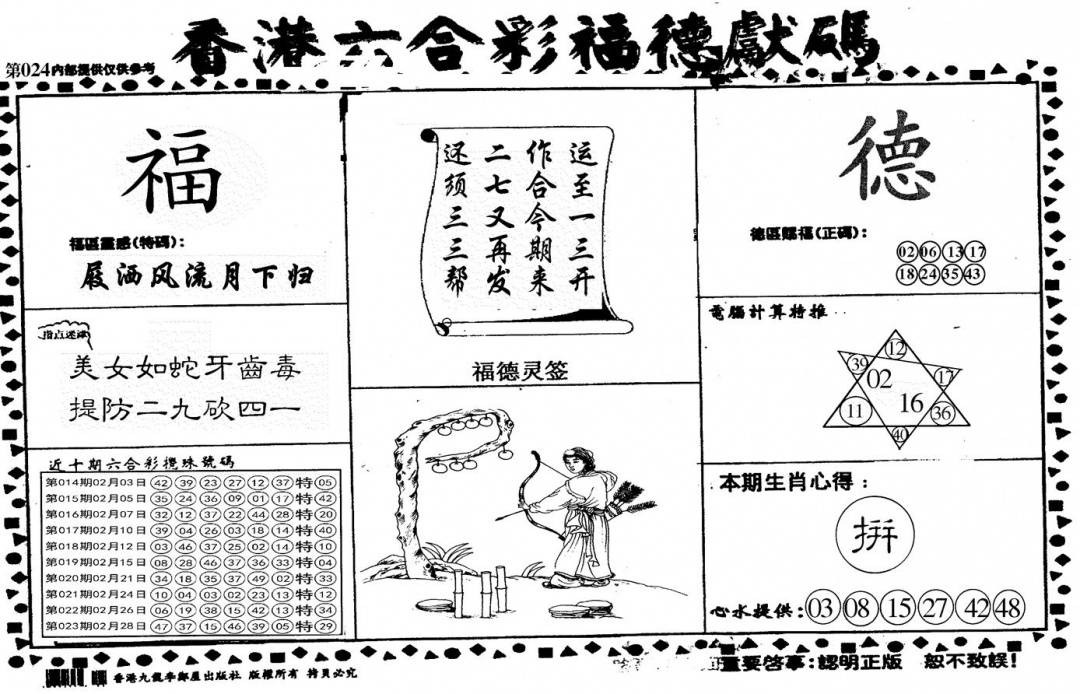 香港六合彩福德獻碼
第024内部提供仅供参考
福
福區靈感(特碼):
屐洒风流月下归
指点迷津
美女如蛇牙齒毒
提防二九砍四一
近十期六合彩攪珠號碼
第014期02月03日 42 39 23 27 12 37 特 05
第015期02月05日 35 24 36 09 01 17 特 42
第016期02月07日 32 12 37 22 44 28 特 20
第017期02月10日 39 04 26 03 18 14 特 40
第018期02月12日 03 46 37 25 02 14 特 10
第019期02月15日 08 28 46 37 36 33 特 04
第020期02月21日 34 18 35 37 49 02 特 33
第021期02月24日 10 04 03 02 23 13 特 12
第022期02月26日 06 19 38 15 42 13 特 34
第023期02月28日 47 37 15 46 39 05 特 29
运至一三开
作合今期来
二七又再发
还须三三帮
福德灵签
德
德區賜福(正碼):
02 06 13 17
18 24 35 43
電腦計算特推
12
39 02 17
11 16 36
40
本期生肖心得:
拼
心水提供:03 08 15 27 42 48
香港九龍李鄭屋出版社 版權所有 拷貝必究
重要啓事:認明正版 恕不致誤!